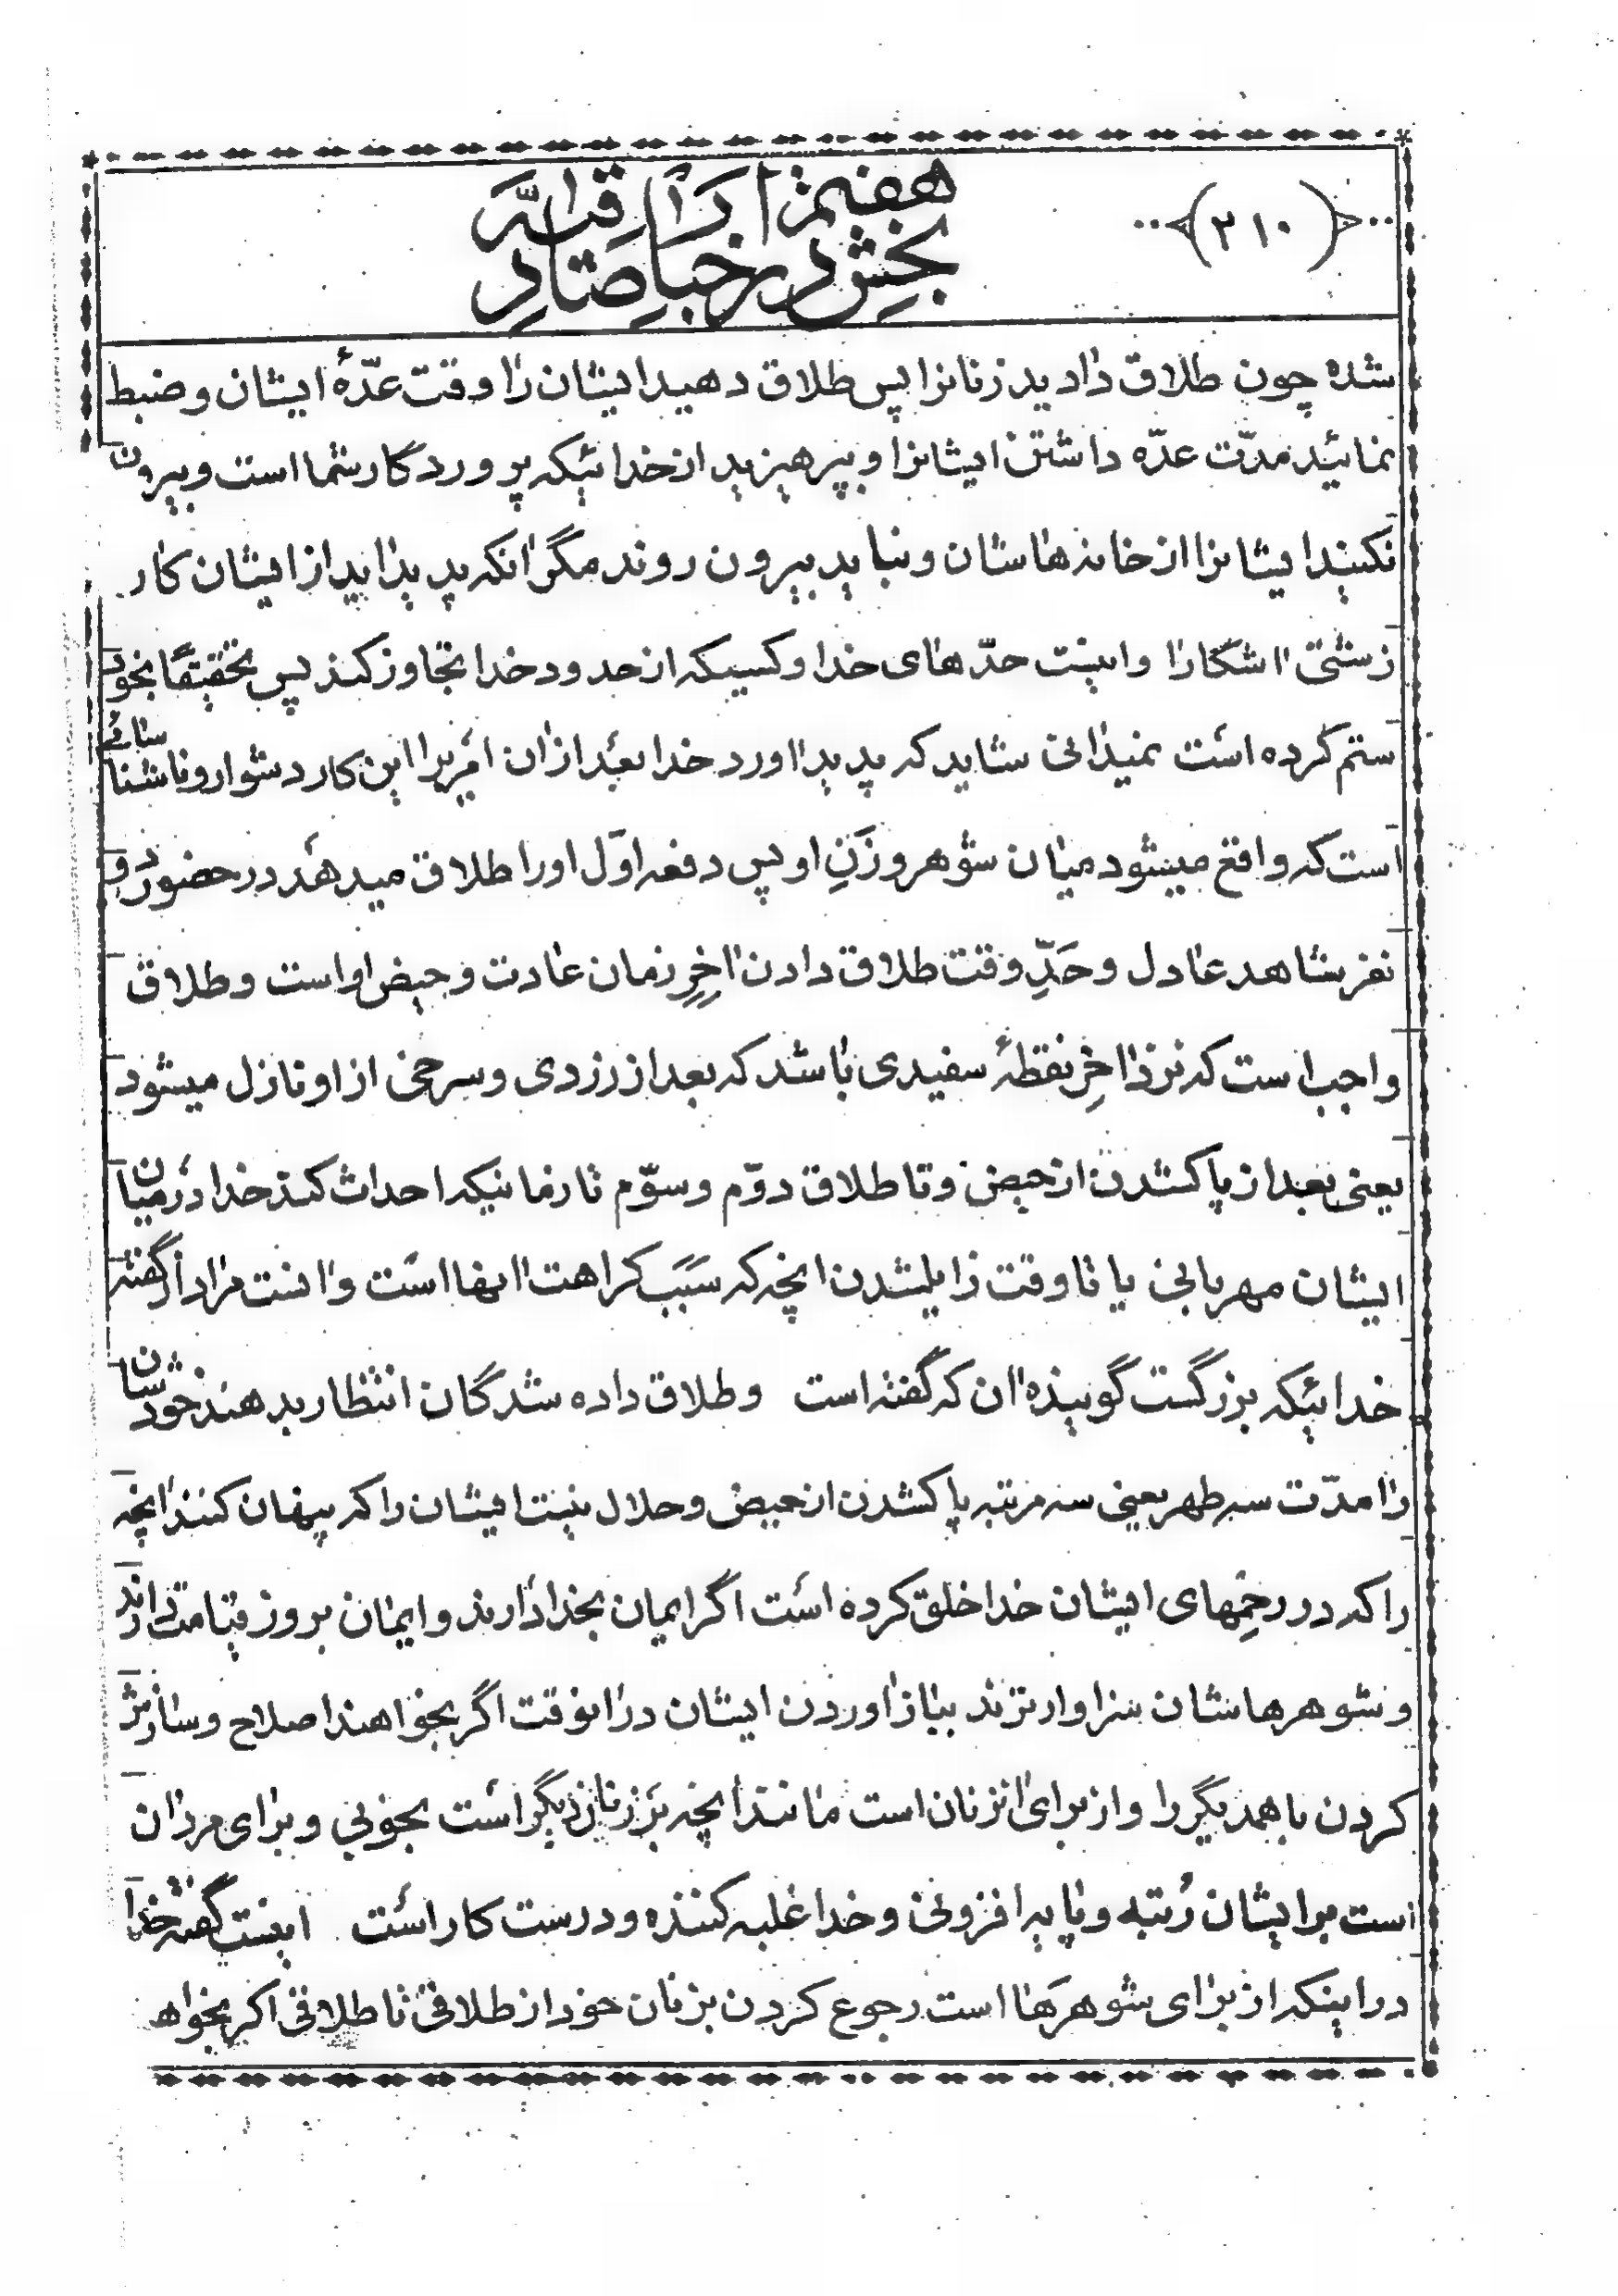 (۲۱۰)
بخش هفتم در اخبار صادقیه
شده چون طلاق دادید زنانرا پس طلاق دهید ایشان را وقت عدّهٔ ایشان و ضبط
نمائید مدّت عدّه داشتن ایشانرا و بپرهیزید از خدائیکه پروردگار شما است و بیرون
نکنید ایشانرا از خانه هاشان و نباید بیرون روند مگر انکه پدید اید از ایشان کار
زشتی اشکارا و اینست حدّهای خدا و کسیکه از حدود خدا تجاوز کند پس تحقیقًا بخود
ستم کرده است نمیدانی شاید که پدید اورد خدا بعد از ان امریرا این کار دشوار و ناشناسائے
است که واقع میشود میان شوهر و زَنِ او پس دفعه اوّل اورا طلاق میدهد در حضور دو
نفر شاهد عادل و حَدِّ وقت طلاق دادن اخِرِ زمان عادت و حیض او است و طلاق
واجب است که نزد اخِرِ نقطهٔ سفیدی باشد که بعد از زردی و سرخی از او نازل میشود
یعنی بعد از پاکشدن از حیض و تا طلاق دوّم و سوّم تا زمانیکه احداث کند خدا در میان
ایشان مهربانی یا تا وقت زایلشدن انچه که سَبَب کراهت انها است و انست مراد از گفته
خدائیکه بزرگست گوینده ان که گفته است و طلاق داده شدگان انتظار بدهند خودشان
را مدّت سه طهر یعنی سه مرتبه پاکشدن از حیض و حلال نیست ایشان را که پنهان کنند انچه
را که در رحِمهای ایشان خدا خلق کرده است اگر ایمان بخدا دارند و ایمان بروز قیامت دارند
و شوهرهاشان سزاوارترند بباز اوردن ایشان در انوقت اگر بخواهند اصلاح و سازش
کردن با همدیگر را و از برای انزنان است مانند انچه بر زنان دیگر است بخوبی و برای مردان
است بر ایشان رُتبه و پایه افزونی و خدا غلبه کننده و درست کار است اینست گفته خدا
در اینکه از برای شوهرها است رجوع کردن بزنان خود از طلاقی تا طلاقی اگر بخواهـ